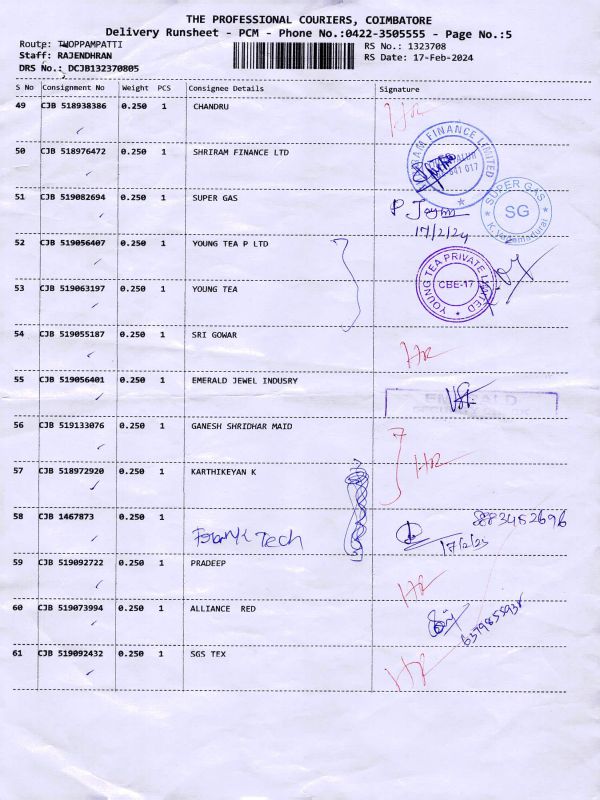 THE PROFESSIONAL COURIERS, COIMBATORE
Delivery Runsheet - PCM - Phone No.:0422-3505555 - Page No.:5
Route: THOPPAMPATTI RS No.: 1323708
Staff: RAJENDHRAN RS Date: 17-Feb-2024
DRS No.: DCJB132370805
S No Consignment No Weight PCS Consignee Details Signature
49 CJB 518938386 0.250 1 CHANDRU
50 CJB 518976472 0.250 1 SHRIRAM FINANCE LTD
FINANCE LIMITED
641 017
51 CJB 519082694 0.250 1 SUPER GAS
17/2/24
SUPER GAS
SG
52 CJB 519056407 0.250 1 YOUNG TEA P LTD
YOUNG TEA PRIVATE LIMITED
CBE-17
53 CJB 519063197 0.250 1 YOUNG TEA
54 CJB 519055187 0.250 1 SRI GOWAR
55 CJB 519056401 0.250 1 EMERALD JEWEL INDUSRY
EMERALD
56 CJB 519133076 0.250 1 GANESH SHRIDHAR MAID
57 CJB 518972920 0.250 1 KARTHIKEYAN K
58 CJB 1467873 0.250 1
Tech
59 CJB 519092722 0.250 1 PRADEEP
60 CJB 519073994 0.250 1 ALLIANCE RED
61 CJB 519092432 0.250 1 SGS TEX